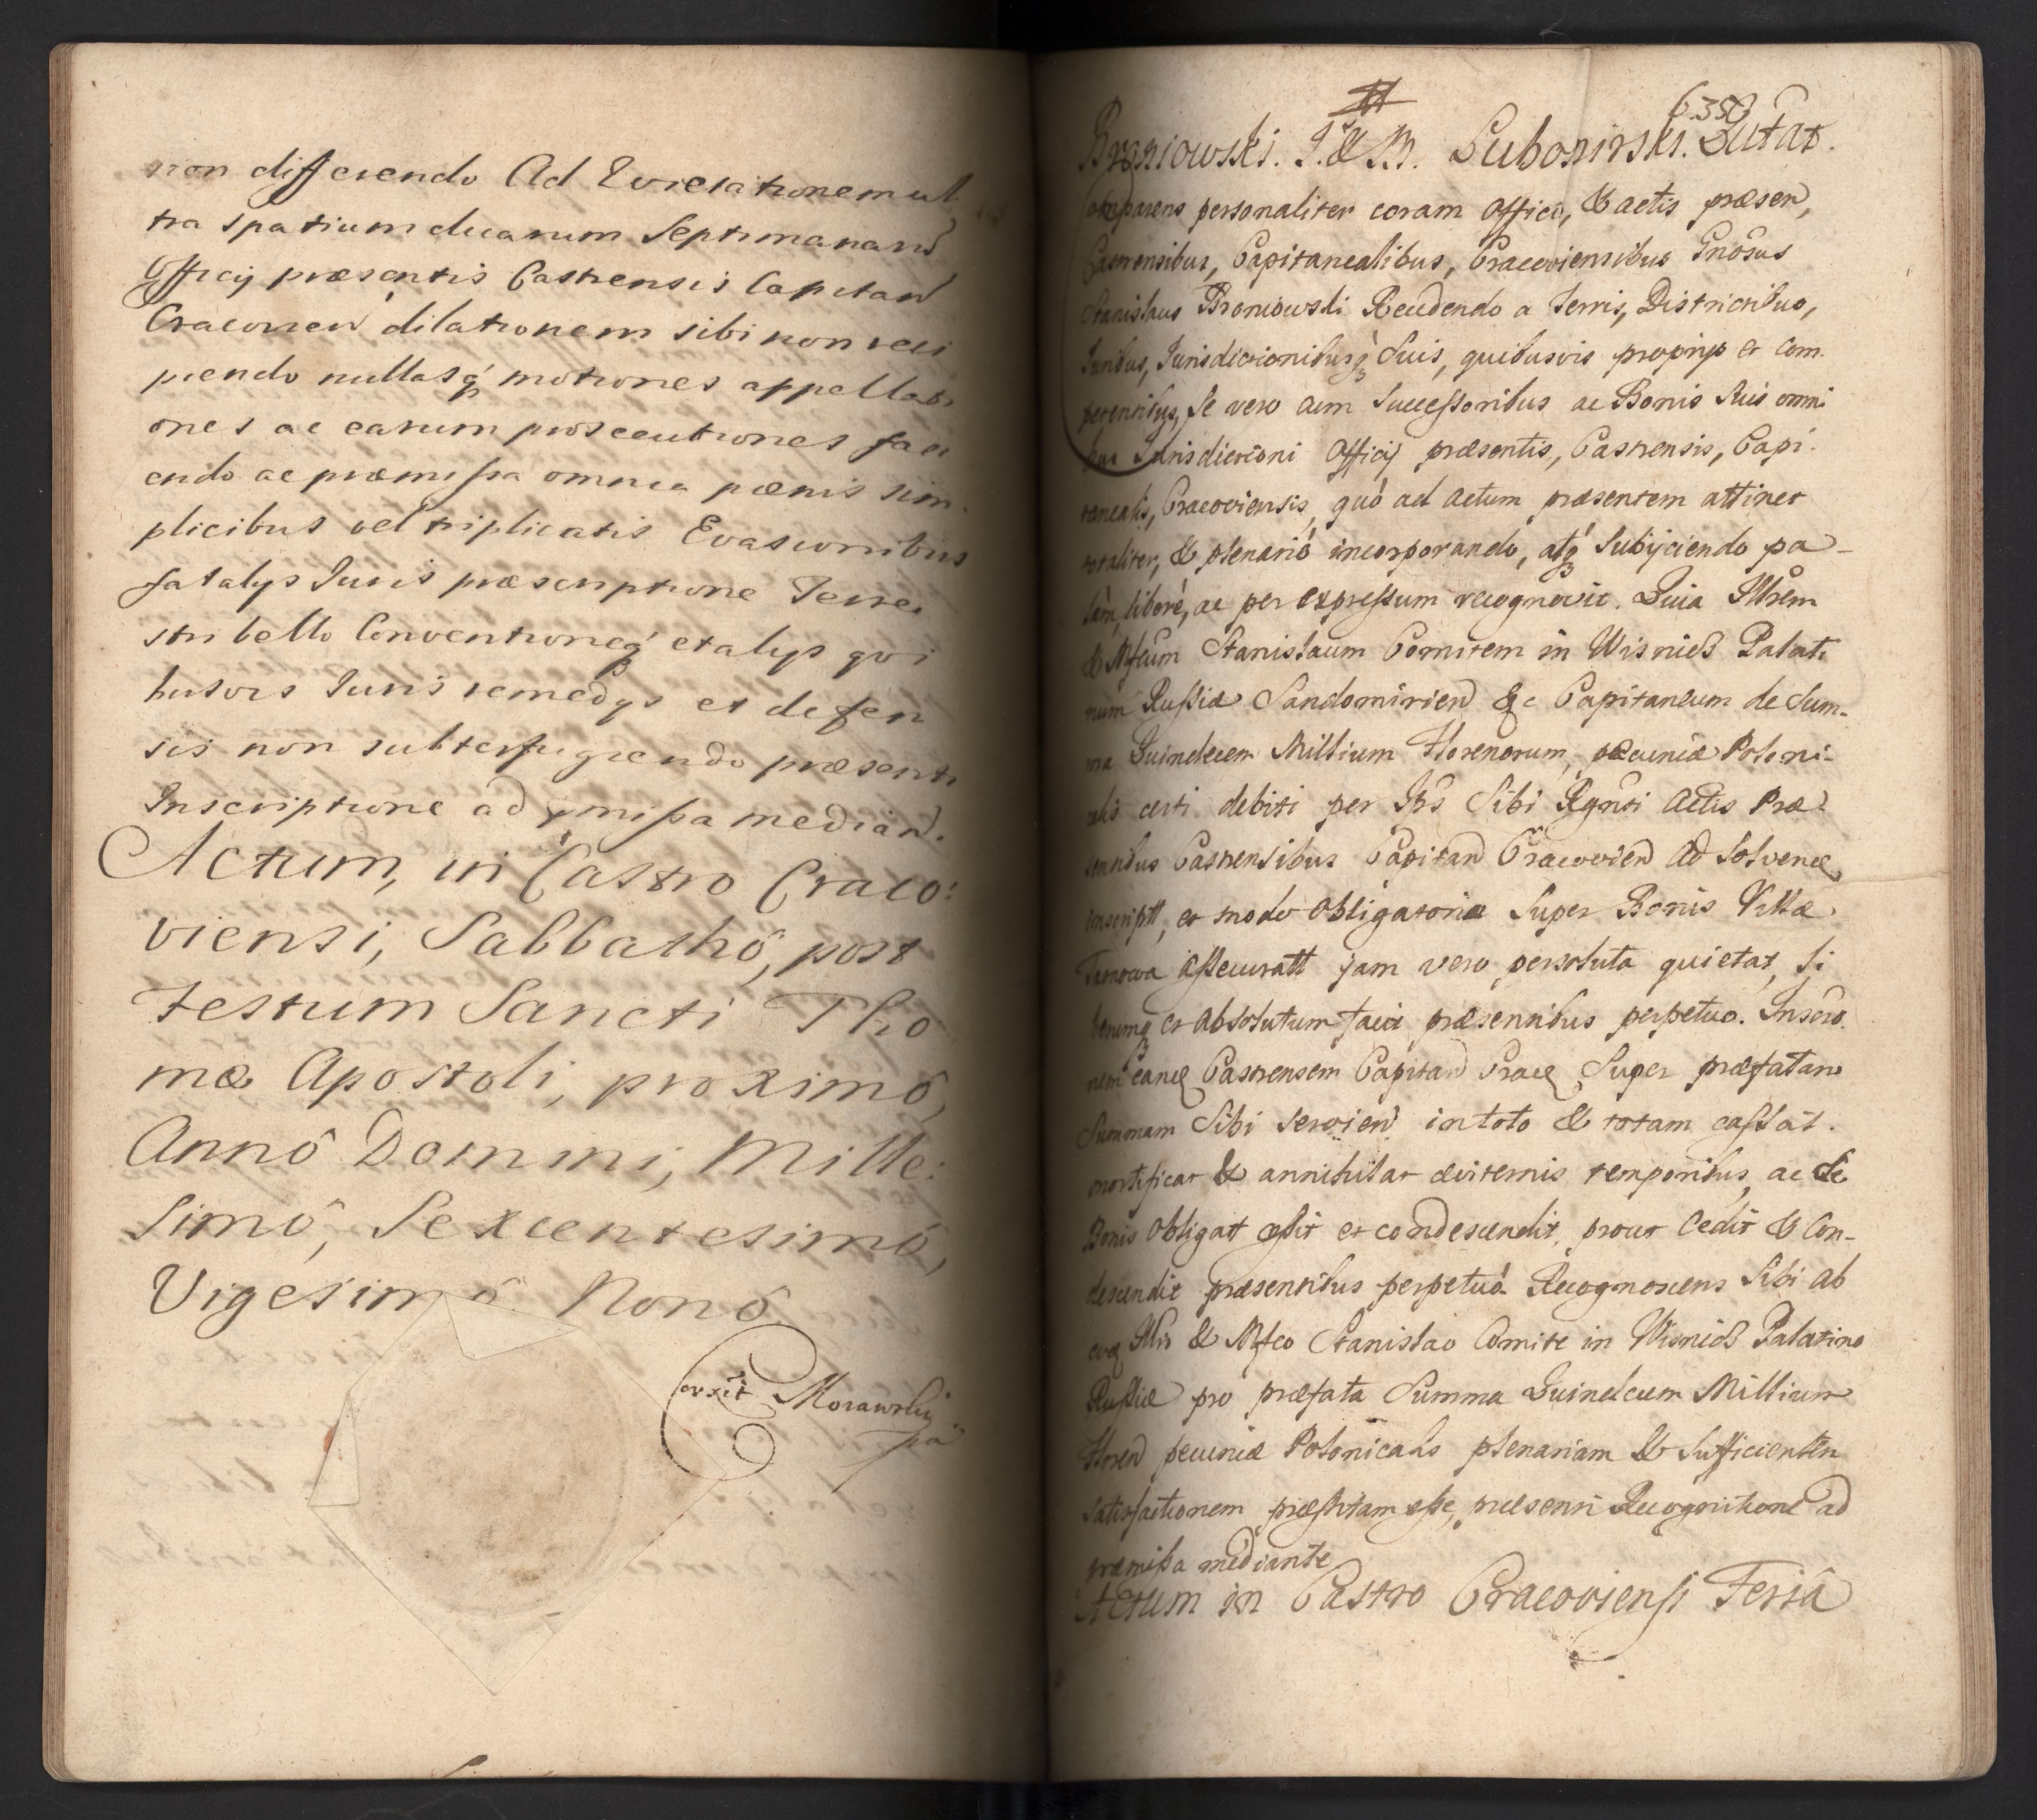 non differendo Ad Evictationem ul
tra spatium duarum Septimanarũ
Officÿ præsentis Castrensis Capitañ
Cracovień dilationem sibi non reci
piendo nullasq́ motiones appellati
ones ac earum prosecutiones faci
endo ac præmißa omnia pœnis sim
plicibus vel triplicatis Evasionibus
fatalÿs Juris præscriptione Terre
stri bello Conventioneq́ et alÿs qui
busvis Juris remedÿs et defen
sis non subterfugiendo præsenti
Inscriptione ad pmißa median̄.
Actum, in Castro Craco:
viensi, Sabbathô, post
Festum Sancti Tho
mæ Apostoli, proximô,
Annô Domini, Mille:
simô, Sexcentesimô,
Vigesimô Nonô.
Corxit Morawsky
pã
6.350
Broniowski. I. & M. Lubomirski. Quitat.
Comparens personaliter coram Officio, & actis præsen,
Castrensibus, Capitanealibus, Cracoviensibus Gnosus
Stanislaus Broniowski Recedendo a Terris, Districtibus,
Juribus, Jurisdictionibusq́ Suis, quibusvis proprÿs et com
petentibus, Se vero cum Successoribus ac Bonis Suis omni
bus Jurisdictioni Officÿ præsentis, Castrensis, Capi.
tanealis, Cracoviensis, quò ad Actum præsentem attinet
totaliter, & plenariè incorporando, atq́ Subÿciendo pa-
làm, liberè, ac per expreßum recognovit. Quia Illrem
& Mfcum Stanislaum Comitem in Wisnicz Palati
num Rußiæ Sandomirien̄ &c Capitaneum de Sum-
ma Quindecem Millium Florenorum, pecuniæ Poloni-
calis certi debiti per Ips Sibi Rgnti Actis Præ
sentibus Castrensibus Capitan̄ Cracovien̄ Ad Solvend
inscriptt, et modo Obligatorio Super Bonis Villæ
Tarnowa aßecuratt jam vero persoluta quietat, Li
berumq́ et absolutum facit præsentibus perpetuo. Inscro
nem eand Castrensem Capitan̄ Crac Super præfatam
Summam Sibi Servien̄ in toto & totam caßat.
mortificat & annihilat æviternis temporibus, ac de
Bonis Obligatt ceßit et condescendit, prout Cedit & Con-
descendit præsentibus perpetuò. Recognoscens Sibi ab
eod Illri & Mfco Stanislao Comite in Wisnicz Palatino
Rußiæ pro præfata Summa Quindecem Millium
Floren̄ pecuniæ Polonicalis plenariam & Sufficientem
Satisfactionem præstitam eße, præsenti Recognitione ad
præmißa mediante
Actum in Castro Cracoviensi Feriâ